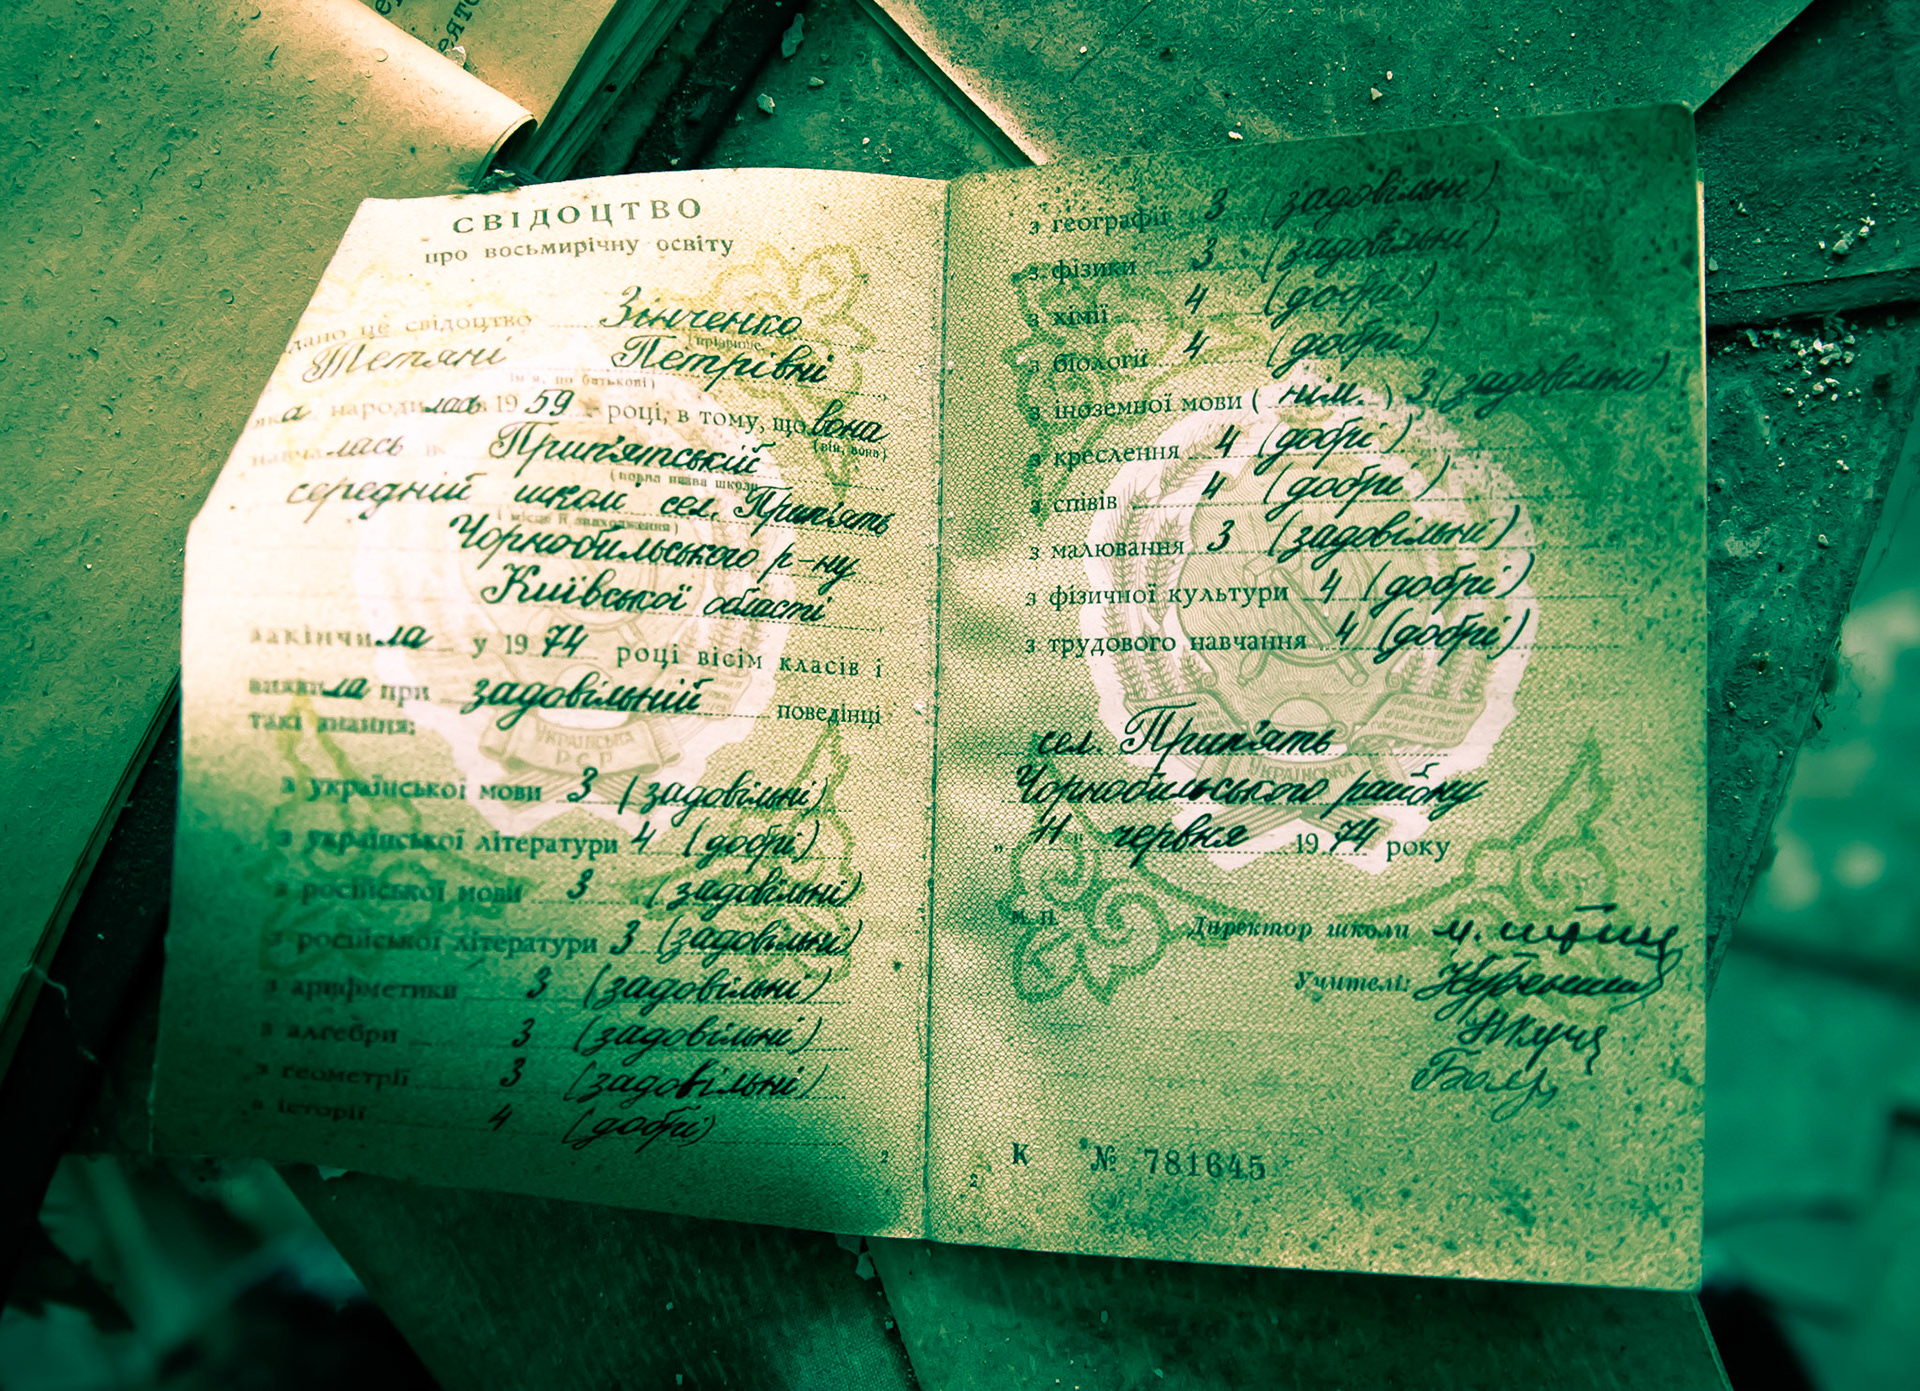 СВІДОЦТВО
про восьмирічну освіту
дано це свідоцтво Зінченко
(прізвище,
Тетяні Петрівні
ім'я, по батькові)
яка народилась 1959 році, в тому, що вона
(він, вона)
навчалась в Прип'ятській
(повна назва школи
середній школі сел. Прип'ять
і місце її знаходження)
Чорнобильського р-ну
Київської області
закінчила у 1974 році вісім класів і
виявила при задовільній поведінці
такі знання:
з української мови 3 (задовільні)
з української літератури 4 (добрі)
з російської мови 3 (задовільні)
з російської літератури 3 (задовільні)
з арифметики 3 (задовільні)
з алгебри 3 (задовільні)
з геометрії 3 (задовільні)
з історії 4 (добрі)
2
УКРАЇНСЬКА
РСР
з географії 3 (задовільні)
з фізики 3 (задовільні)
з хімії 4 (добрі)
з біології 4 (добрі)
з іноземної мови (нім.) 3 (задовільні)
з креслення 4 (добрі)
з співів 4 (добрі)
з малювання 3 (задовільні)
з фізичної культури 4 (добрі)
з трудового навчання 4 (добрі)
сел. Прип'ять
Чорнобильського району
„11" червня 1974 року
УКРАЇНСЬКА
М. П.
Директор школи
Учителі:
К № 781645
2